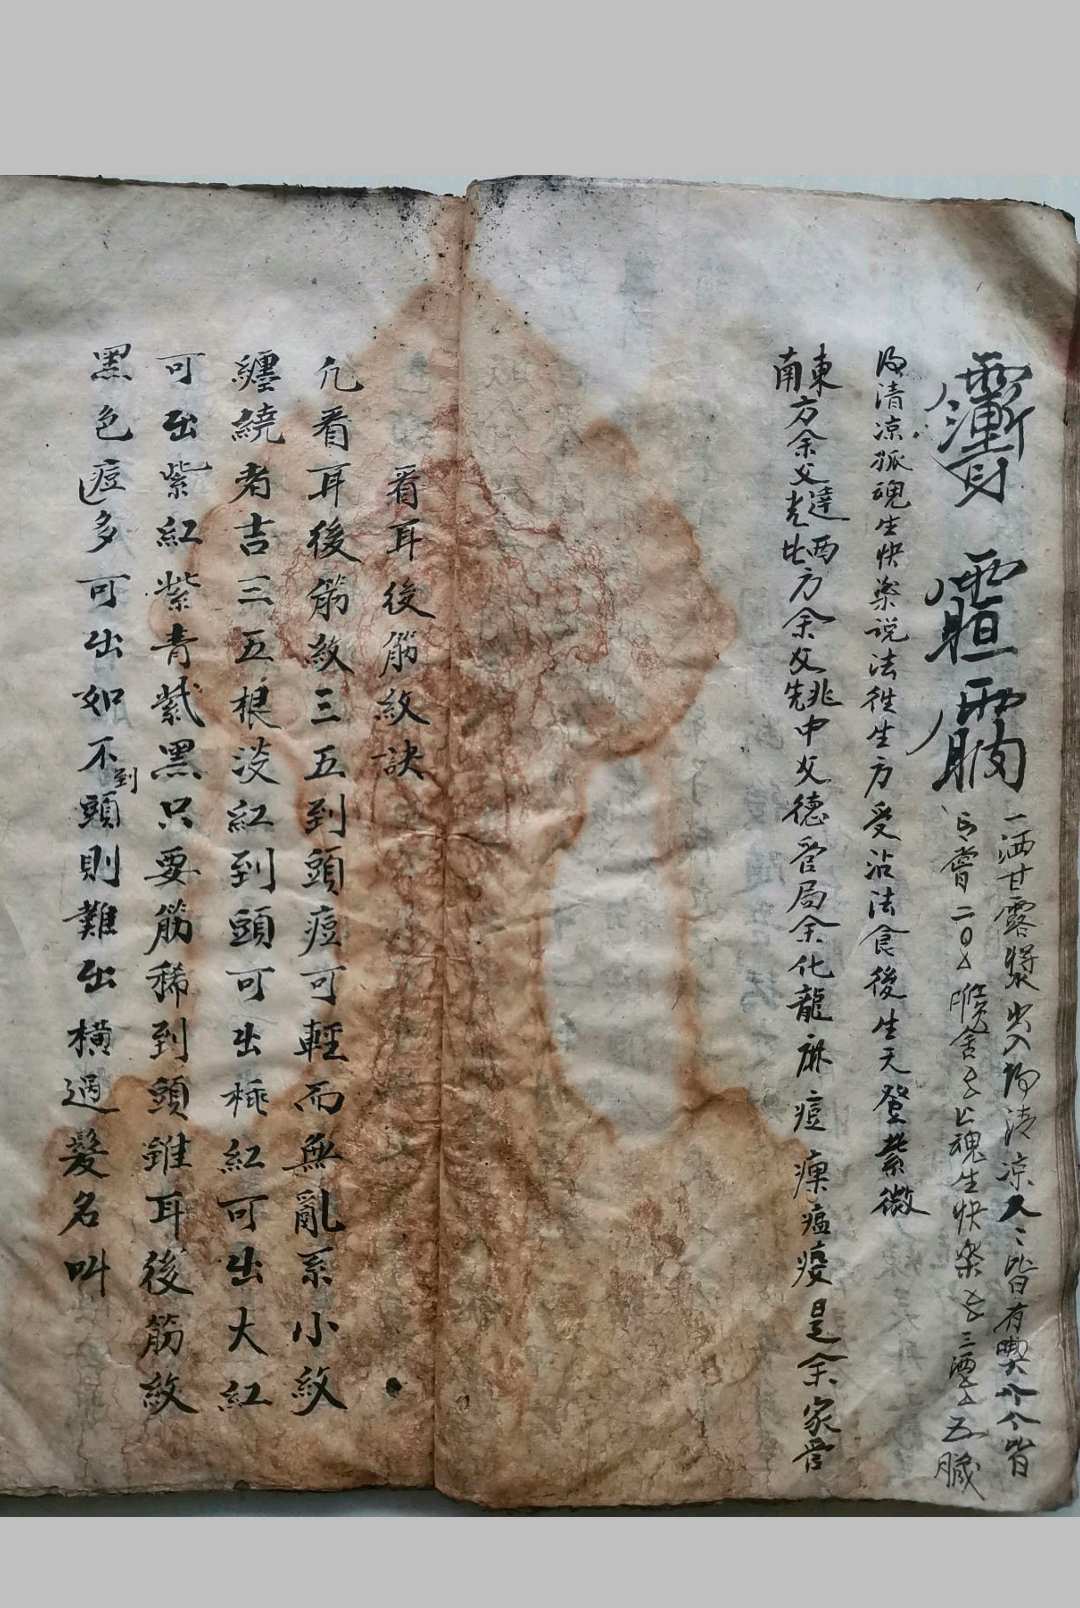 一洒甘露漿出入均清凉人〻皆有興个个皆
嘗二 魂生快楽 三洒 五臓
清凉孤魂生快楽说法徃生方受沾法食後生天登紫微
東方余父達西方余父 中父德管局余化龍麻痘 瘟疫是余家管
南 北
看耳後筋紋訣
凢看耳後筋紋三五到頭痘可輕而無亂系小紋
纒繞者吉三五根淡紅到頭可出極紅可出大紅
可出紫紅紫青紫黑只要筋稀到頭雖耳後筋紋
黑色痘多可出如不到頭則難出橫過髮名叫